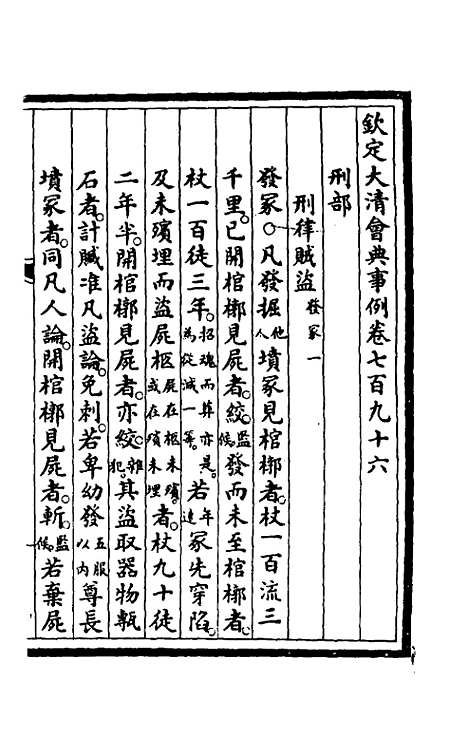 欽定大清會典事例卷七百九十六
刑部
刑律賊盜發冢一
發冢○凡發掘他人墳冢見棺槨者。杖一百流三
千里。已開棺槨見屍者。絞。監候。發而未至棺槨者。
杖一百徒三年。招魂而葬亦是。為從減一等。若年遠冢先穿陷。
及未殯埋而盜屍柩屍在柩未殯。或在殯未埋者。杖九十徒
二年半。開棺槨見屍者。亦絞。雜犯。其盜取器物甎
石者。計贓准凡盜論。免刺。若卑幼發五服以內尊長
墳冢者。同凡人論。開棺槨見屍者。斬。監候。若棄屍